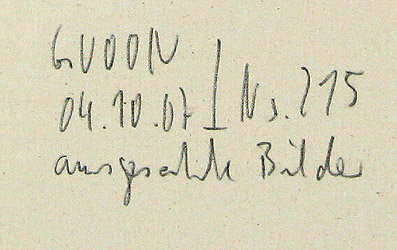 GUDON
04.10.07 | Ns. 215
ausgesuchte Bilder